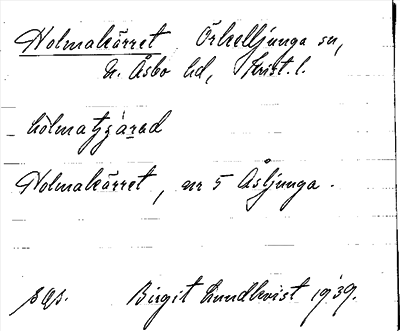 Holmakärret Örkelljunga sn,
N. Åsbo hd, Krist. l.
Holmakärret, nr 5 Åsljunga.
sgs. Birgit Lundkvist 1939.